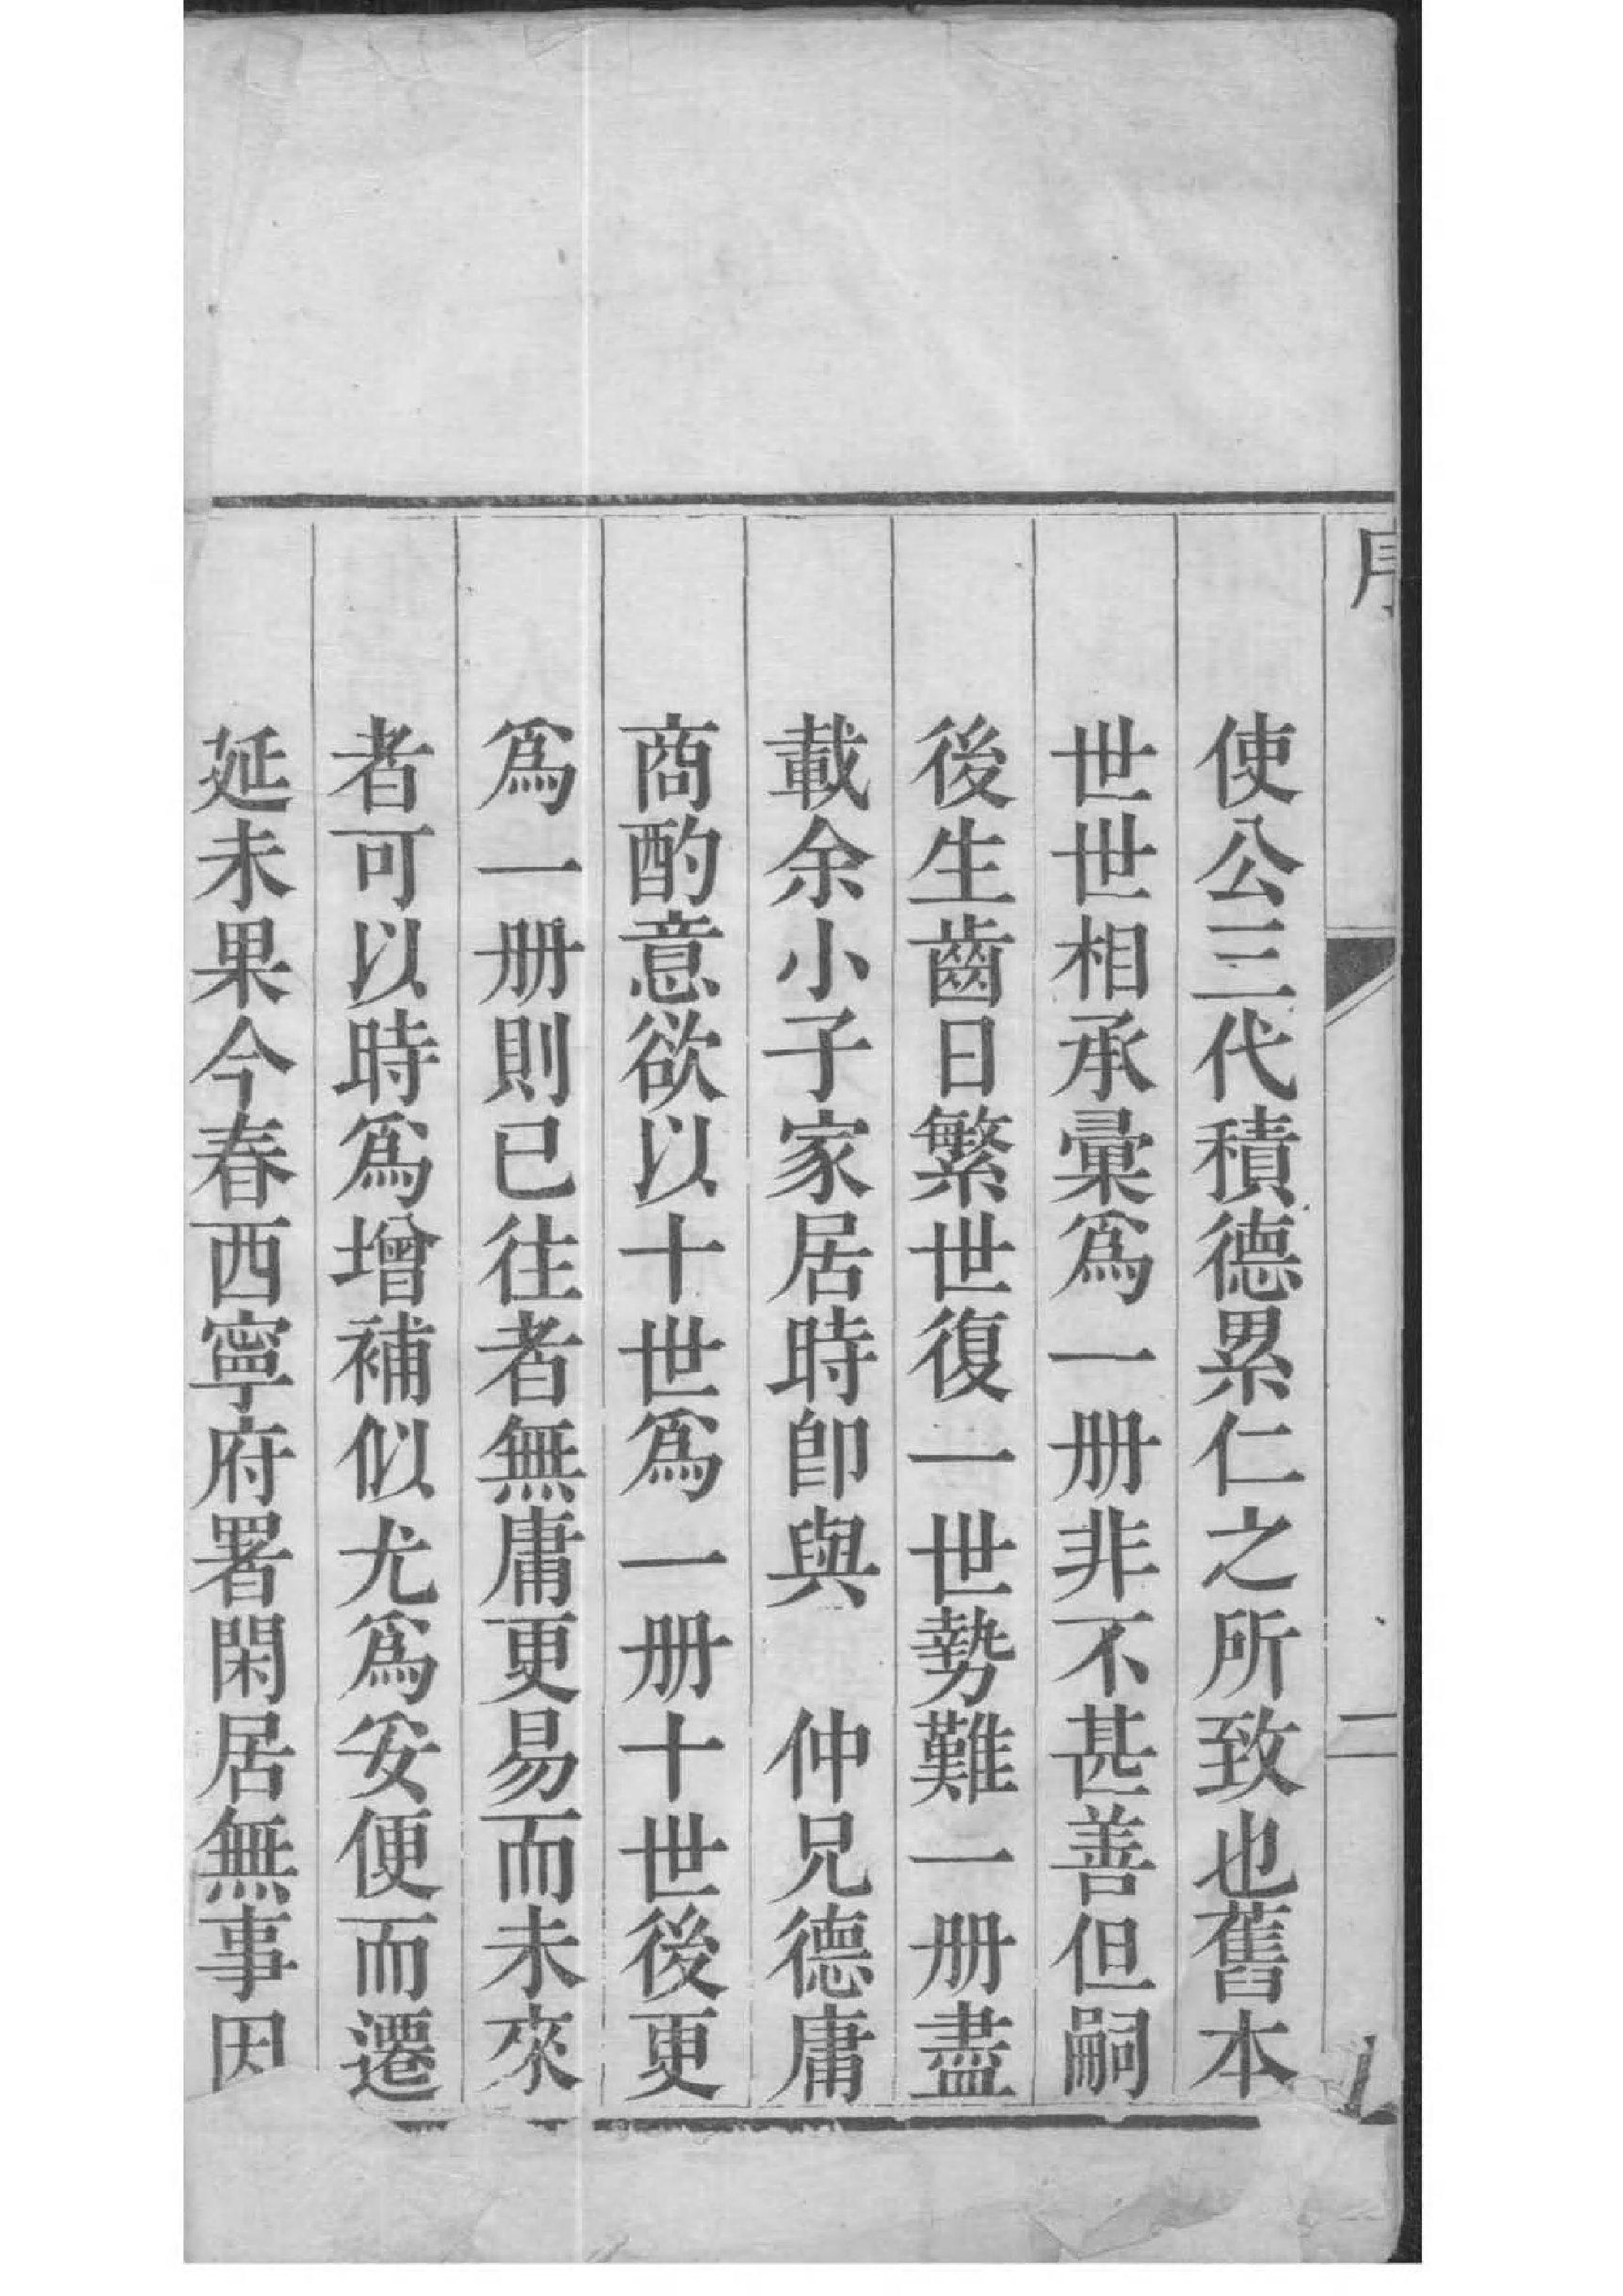 序
二
使公三代積德累仁之所致也舊本
世世相承彙爲一册非不甚善但嗣
後生齒日繁世復一世勢難一册盡
載余小子家居時卽與　仲兄德庸
商酌意欲以十世爲一册十世後更
爲一册則已往者無庸更易而未來
者可以時爲增補似尤爲妥便而遷
延未果今春西寧府署閑居無事因